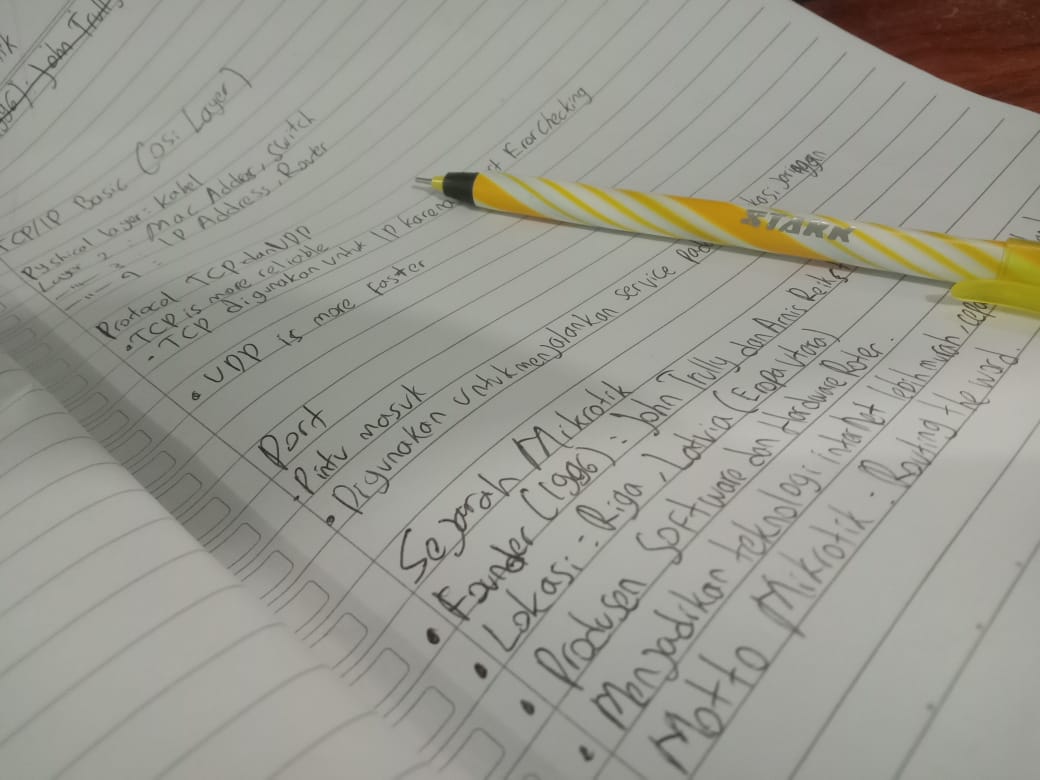 1996): John Trully
TCP/IP Basic (osi Layer)
Pystical layer: Kabel
Layer 2 : Mac Adder, Switch
-"- 3 : IP Address, Router
-"- 4 :
Protocol TCP dan UDP
• TCP is more reliable
• TCP digunakan untuk IP karena Eror checking
• UDP is more faster
Port
• Pintu masuk
• Digunakan untuk menjalankan service pada jaringan
Sejarah Mikrotik
• Founder (1996) : John Trully dan Arnis Reikst
• Lokasi : Riga, Latvia (Eropa Utara)
• Produsen Software dan Hardware Roter.
• Menjadikan teknologi internet lebih murah, cepa
Motto Mikrotik : Routing the word.
STARK